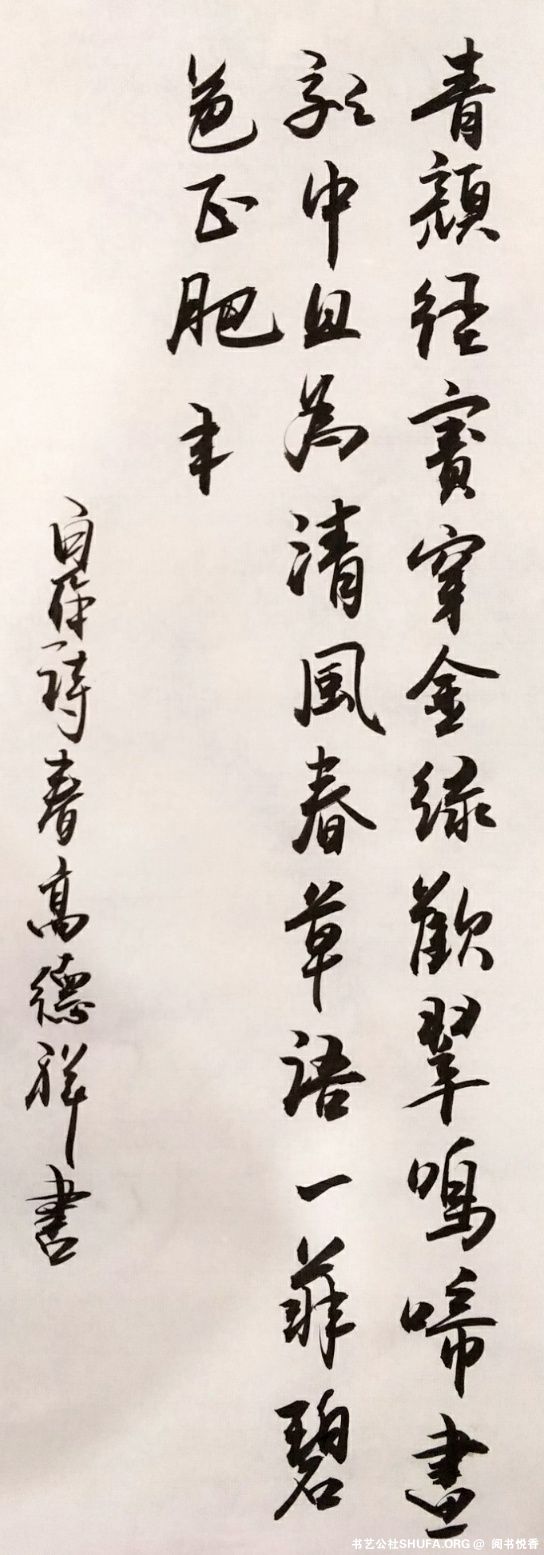 青顏經賽穿金綠歡翠鳴啼畫
彩中且為清風春草語一華碧
色正肥年
自作詩春高德祥書
书艺公社SHUFA.ORG @ 阅书悦香